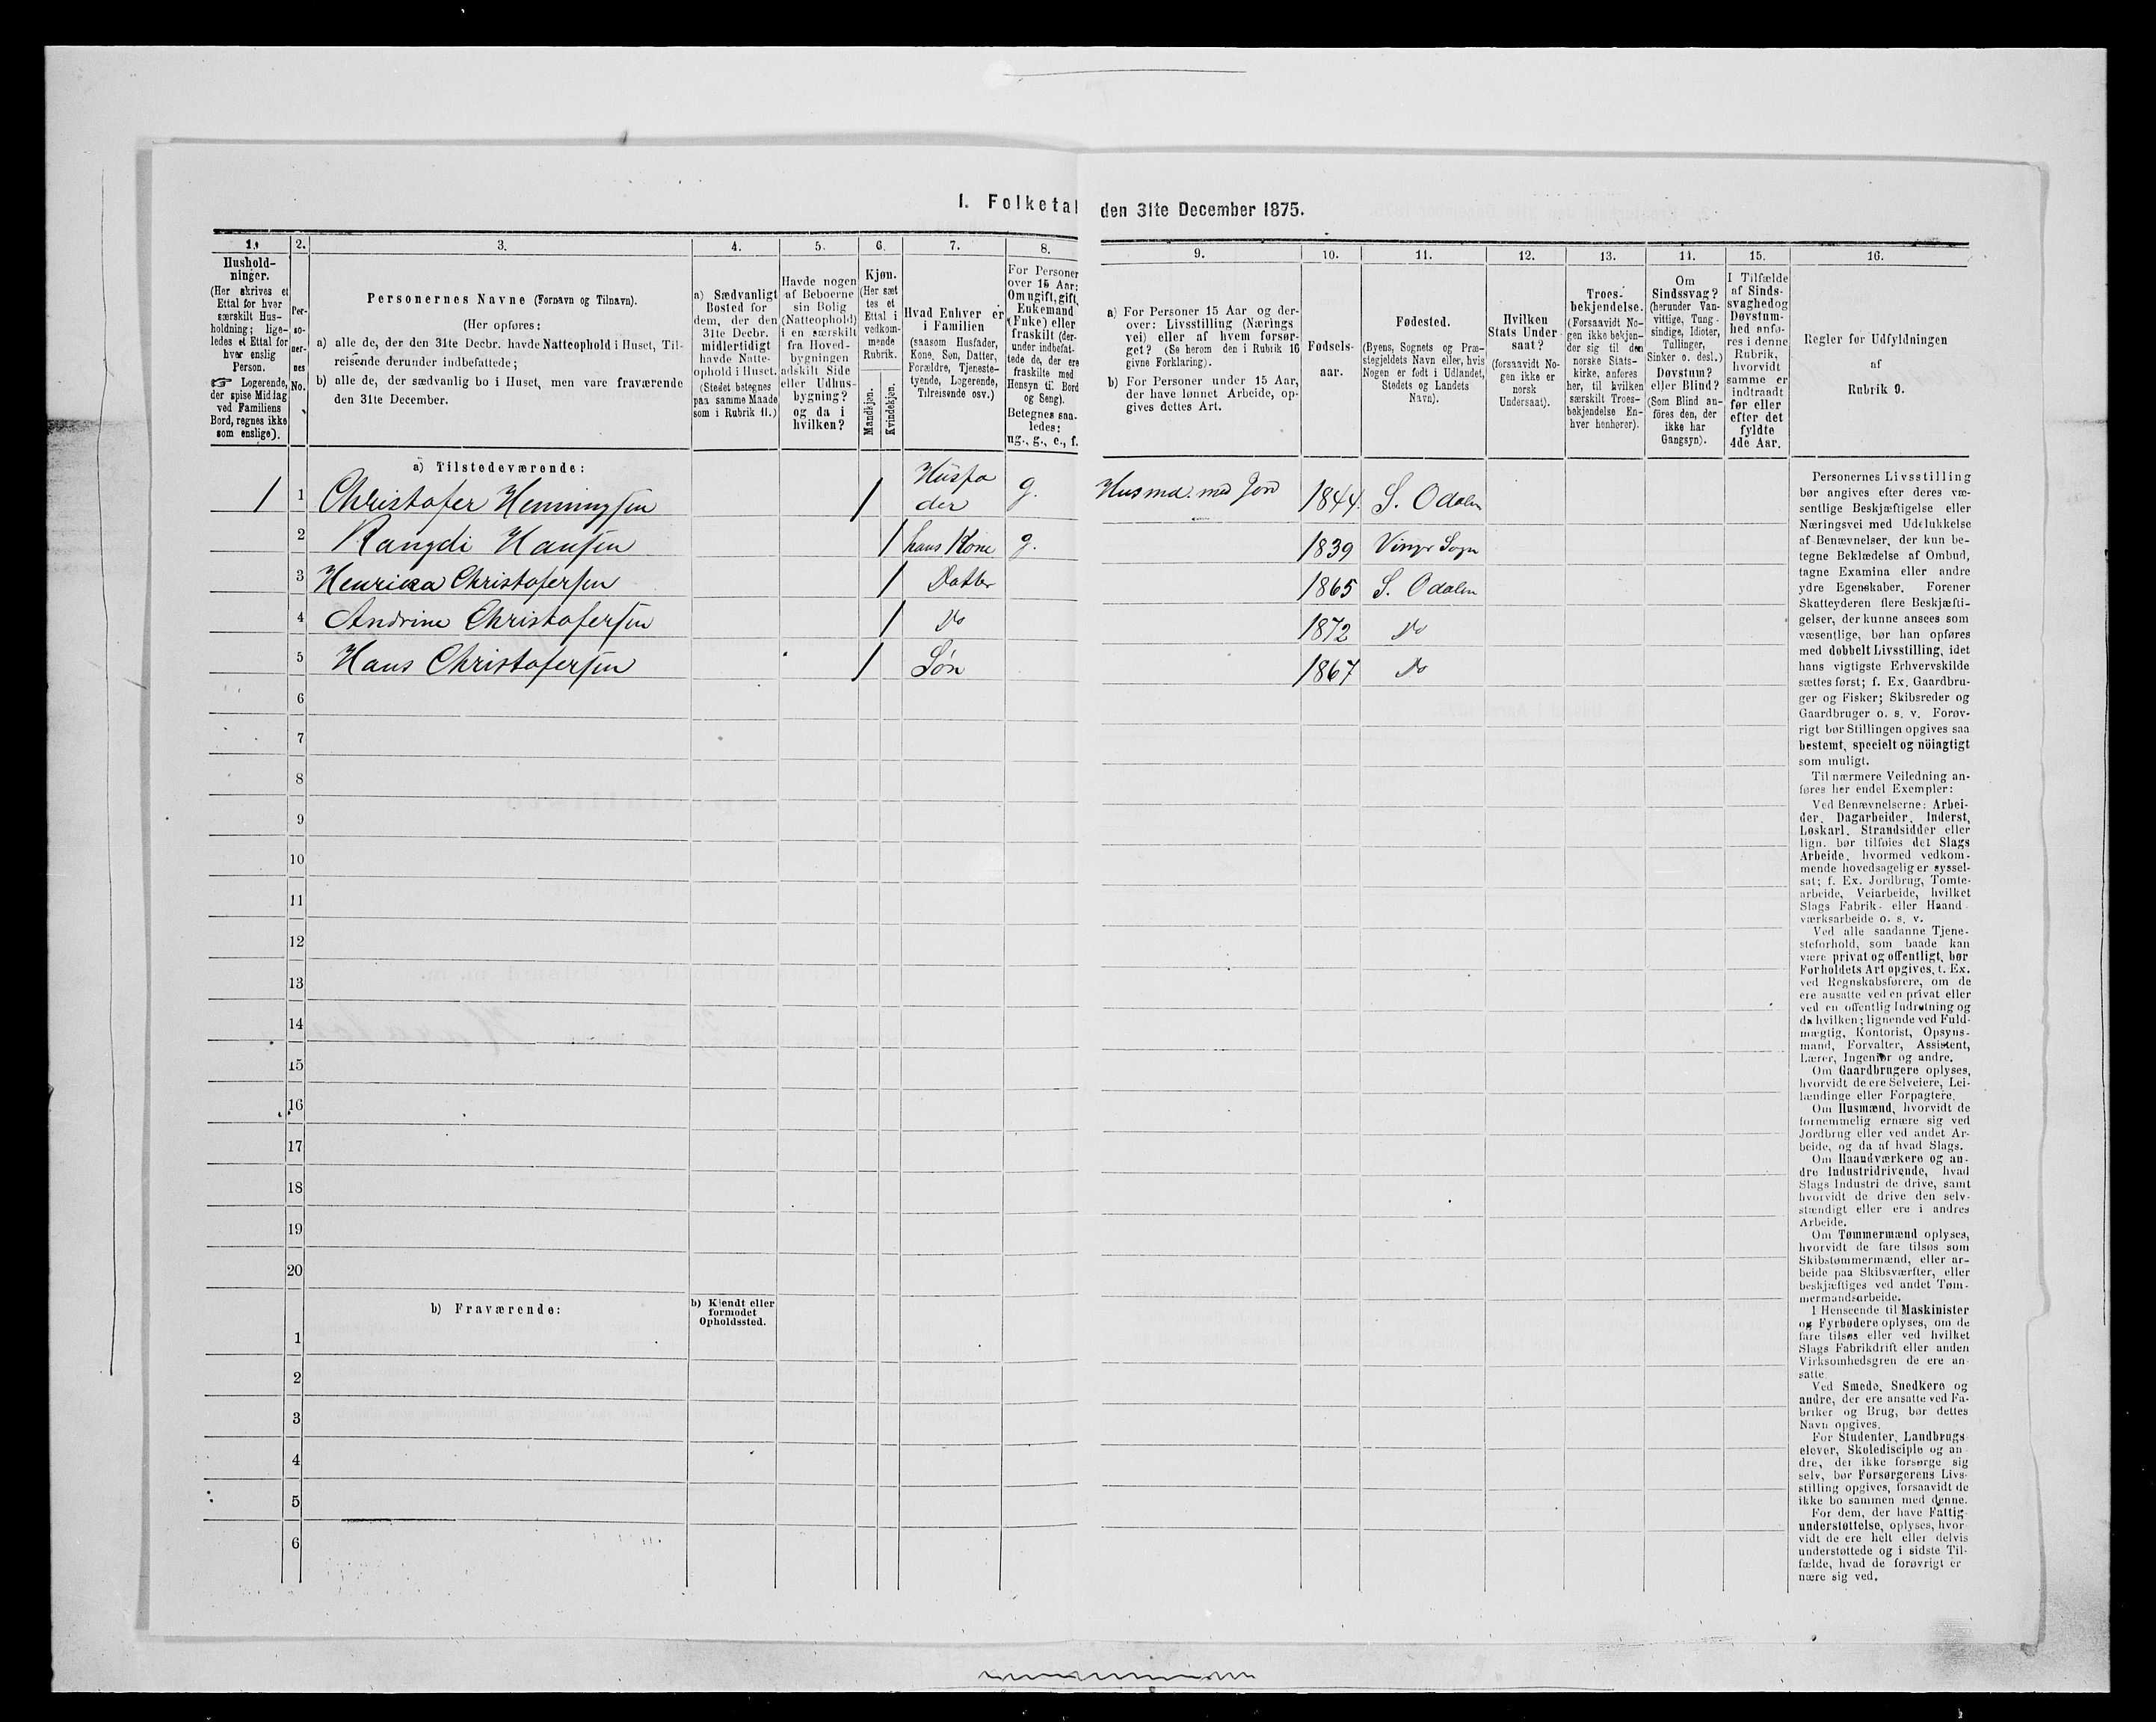 I. Folketal den 31te December 1875.
1. 2. 3. 4. 5. 6. 7. 8. 9. 10. 11. 12. 13. 14. 15. 16.
Hushold-
ninger.
(Her skrives et
Ettal for hver
særskilt Hus-
holdning; lige-
ledes et Ettal for
hver enslig
Person.
☞ Logerende,
der spise Middag
ved Familiens
Bord, regnes ikke
som enslige).
Per-
so-
ner-
nes
No.
Personernes Navne (Fornavn og Tilnavn).
(Her opføres:
a) alle de, der den 31te Decbr. havde Natteophold i Huset, Til-
reisende derunder indbefattede;
b) alle de, der sædvanlig bo i Huset, men vare fraværende
den 31te December.
a) Sædvanligt
Bosted for
dem, der den
31te Decbr.
midlertidigt
havde Natte-
ophold i Huset.
(Stedet betegnes
paa samme Maade
som i Rubrik 11.)
Havde nogen
af Beboerne
sin Bolig
(Natteophold)
i en særskilt
fra Hoved-
bygningen
adskilt Side
eller Udhus-
bygning?
og da i
hvilken?
Kjøn.
(Her sæt
tes et
Ettal i
vedkom-
mende
Rubrik.
Mandkjøn.
Kvindekjøn.
Hvad Enhver er
i Familien
(saasom Husfader,
Kone, Søn, Datter,
Forældre, Tjeneste-
tyende, Logerende,
Tilreisende osv.)
For Personer
over 15 Aar:
Om ugift, gift,
Enkemand
(Enke) eller
fraskilt (der-
under indbefat-
tede de, der ere
fraskilte med
Hensyn til Bord
og Seng).
Betegnes saa-
ledes:
ug., g., e., f.
a) For Personer 15 Aar og der-
over: Livsstilling (Nærings
vei) eller af hvem forsør-
get? (Se herom den i Rubrik 16
givne Forklaring).
b) For Personer under 15 Aar,
der have lønnet Arbeide, op-
gives dettes Art.
Fødsels-
aar.
Fødested.
(Byens, Sognets og Præ-
stegjeldets Navn eller, hvis
Nogen er født i Udlandet,
Stedets og Landets
Navn).
Hvilken
Stats Under-
saat?
(forsaavidt No-
gen ikke er
norsk
Undersaat).
Troes-
bekjendelse.
(Forsaavidt No-
gen ikke bekjen-
der sig til den
norske Stats-
kirke, anføres
her, til hvilken
særskilt Troes-
bekjendelse En-
hver henhører).
Om
Sindssvag?
(herunder Van-
vittige, Tung-
sindige, Idioter,
Tullinger,
Sinker o. desl.)
Døvstum?
eller Blind?
(Som Blind an-
føres den, der
ikke har
Gangsyn).
I Tilfælde
af Sinds-
svaghed og
Døvstum-
hed anfø-
res i denne
Rubrik,
hvorvidt
samme er
indtraadt
før eller
efter det
fyldte
4de Aar.
Regler for Udfyldningen
af
Rubrik 9.
a) Tilstedeværende:
1 1 Christofer Henningsen 1 Husfader g. Husmd. med Jord 1844. S. Odalen
2 Rangdi Hansen 1 hans Kone g. 1839 Vinger Sogn
3 Henricca Christofersen 1 Datter 1865 S. Odalen
4 Andrine Christofersen 1 Do 1872 Do
5 Hans Christofersen 1 Søn 1867 Do
6
7
8
9
10
11
12
13
14
15
16
17
18
19
20
b) Fraværende:
b) Kjendt eller
formodet
Opholdssted.
1
2
3
4
5
6
Personernes Livsstilling
bør angives efter deres væ-
sentlige Beskjæftigelse eller
Næringsvei med Udelukkelse
af Benævnelser, der kun be-
tegne Beklædelse af Ombud,
tagne Examina eller andre
ydre Egenskaber. Forener
Skatteyderen flere Beskjæfti-
gelser, der kunne ansees som
væsentlige, bør han opføres
med dobbelt Livsstilling, idet
hans vigtigste Erhvervskilde
sættes først; f. Ex. Gaardbru-
ger og Fisker; Skibsreder og
Gaardbruger o. s. v. Forøv-
rigt bør Stillingen opgives saa
bestemt, specielt og nöiagtigt
som muligt.
Til nærmere Veiledning an-
føres her endel Exempler:
Ved Benævnelserne: Arbei-
der, Dagarbeider, Inderst,
Løskarl, Strandsidder eller
lign. bør tilføies det Slags
Arbeide, hvormed vedkom-
mende hovedsagelig er syssel-
sat; f. Ex. Jordbrug, Tomte-
arbeide, Veiarbeide, hvilket
Slags Fabrik- eller Haand-
værksarbeide o. s. v.
Ved alle saadanne Tjene-
steforhold, som baade kan
være privat og offentligt, bør
Forholdets Art opgives, t. Ex.
ved Regnskabsførere, om de
ere ansatte ved en privat eller
ved en offentlig Indretning og
da hvilken; lignende ved Fuld-
mægtig, Kontorist, Opsyns-
mand, Forvalter, Assistent,
Lærer, Ingeniør og andre.
Om Gaardbrugere oplyses,
hvorvidt de ere Selveiere, Lei-
lændinge eller Forpagtere.
Om Husmænd, hvorvidt de
fornemmelig ernære sig ved
Jordbrug eller ved andet Ar-
beide, og da af hvad Slags.
Om Haandværkere og an-
dre Industridrivende, hvad
Slags Industri de drive, samt
hvorvidt de drive den selv-
stændigt eller ere i andres
Arbeide.
Om Tømmermænd oplyses,
hvorvidt de fare tilsøs som
Skibstømmermænd, eller ar-
beide paa Skibsværfter, eller
beskjæftiges ved andet Tøm-
mermandsarbeide.
I Henseende til Maskinister
og Fyrbødere oplyses, om de
fare tilsøs eller ved hvilket
Slags Fabrikdrift eller anden
Virksomhedsgren de ere an-
satte.
Ved Smede, Snedkere og
andre, der ere ansatte ved Fa-
briker og Brug, bør dettes
Navn opgives.
For Studenter, Landbrugs-
elever, Skoledisciple og an-
dre, der ikke forsørge sig
selv, bør Forsørgerens Livs-
stilling opgives, forsaavidt de
ikke bo sammen med denne.
For dem, der have Fattig-
understøttelse, oplyses, hvor-
vidt de ere helt eller delvis
understøttede og i sidste Til-
fælde, hvad de forøvrigt er-
nære sig ved.